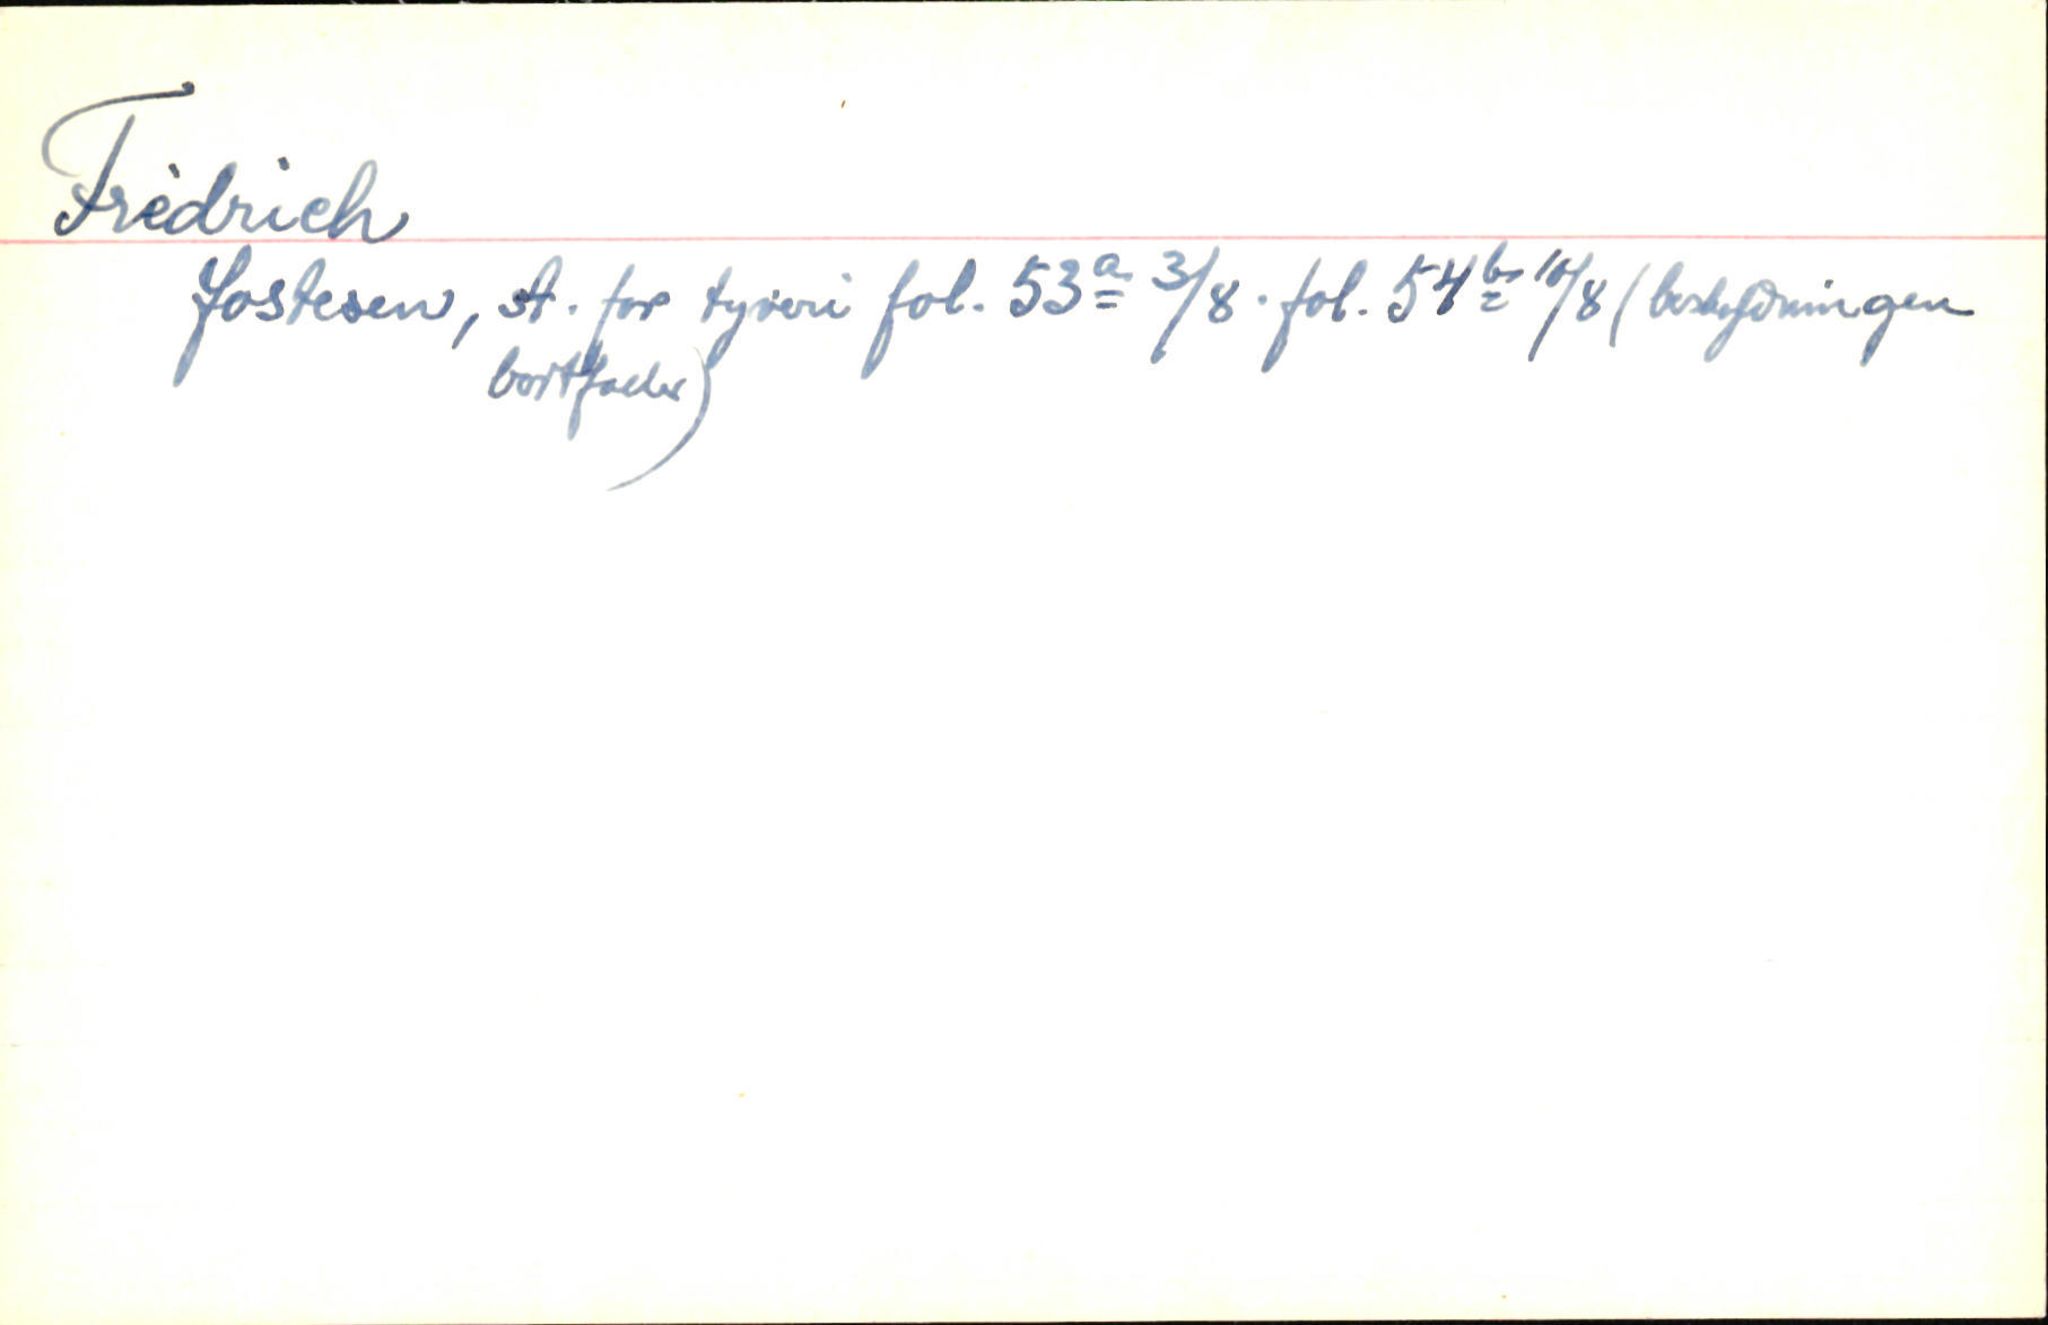 Fredrich
Jostesen, st. for tyveri fol. 53a 3/8. fol. 54b 10/8 (beskyldningen
bortfaller)